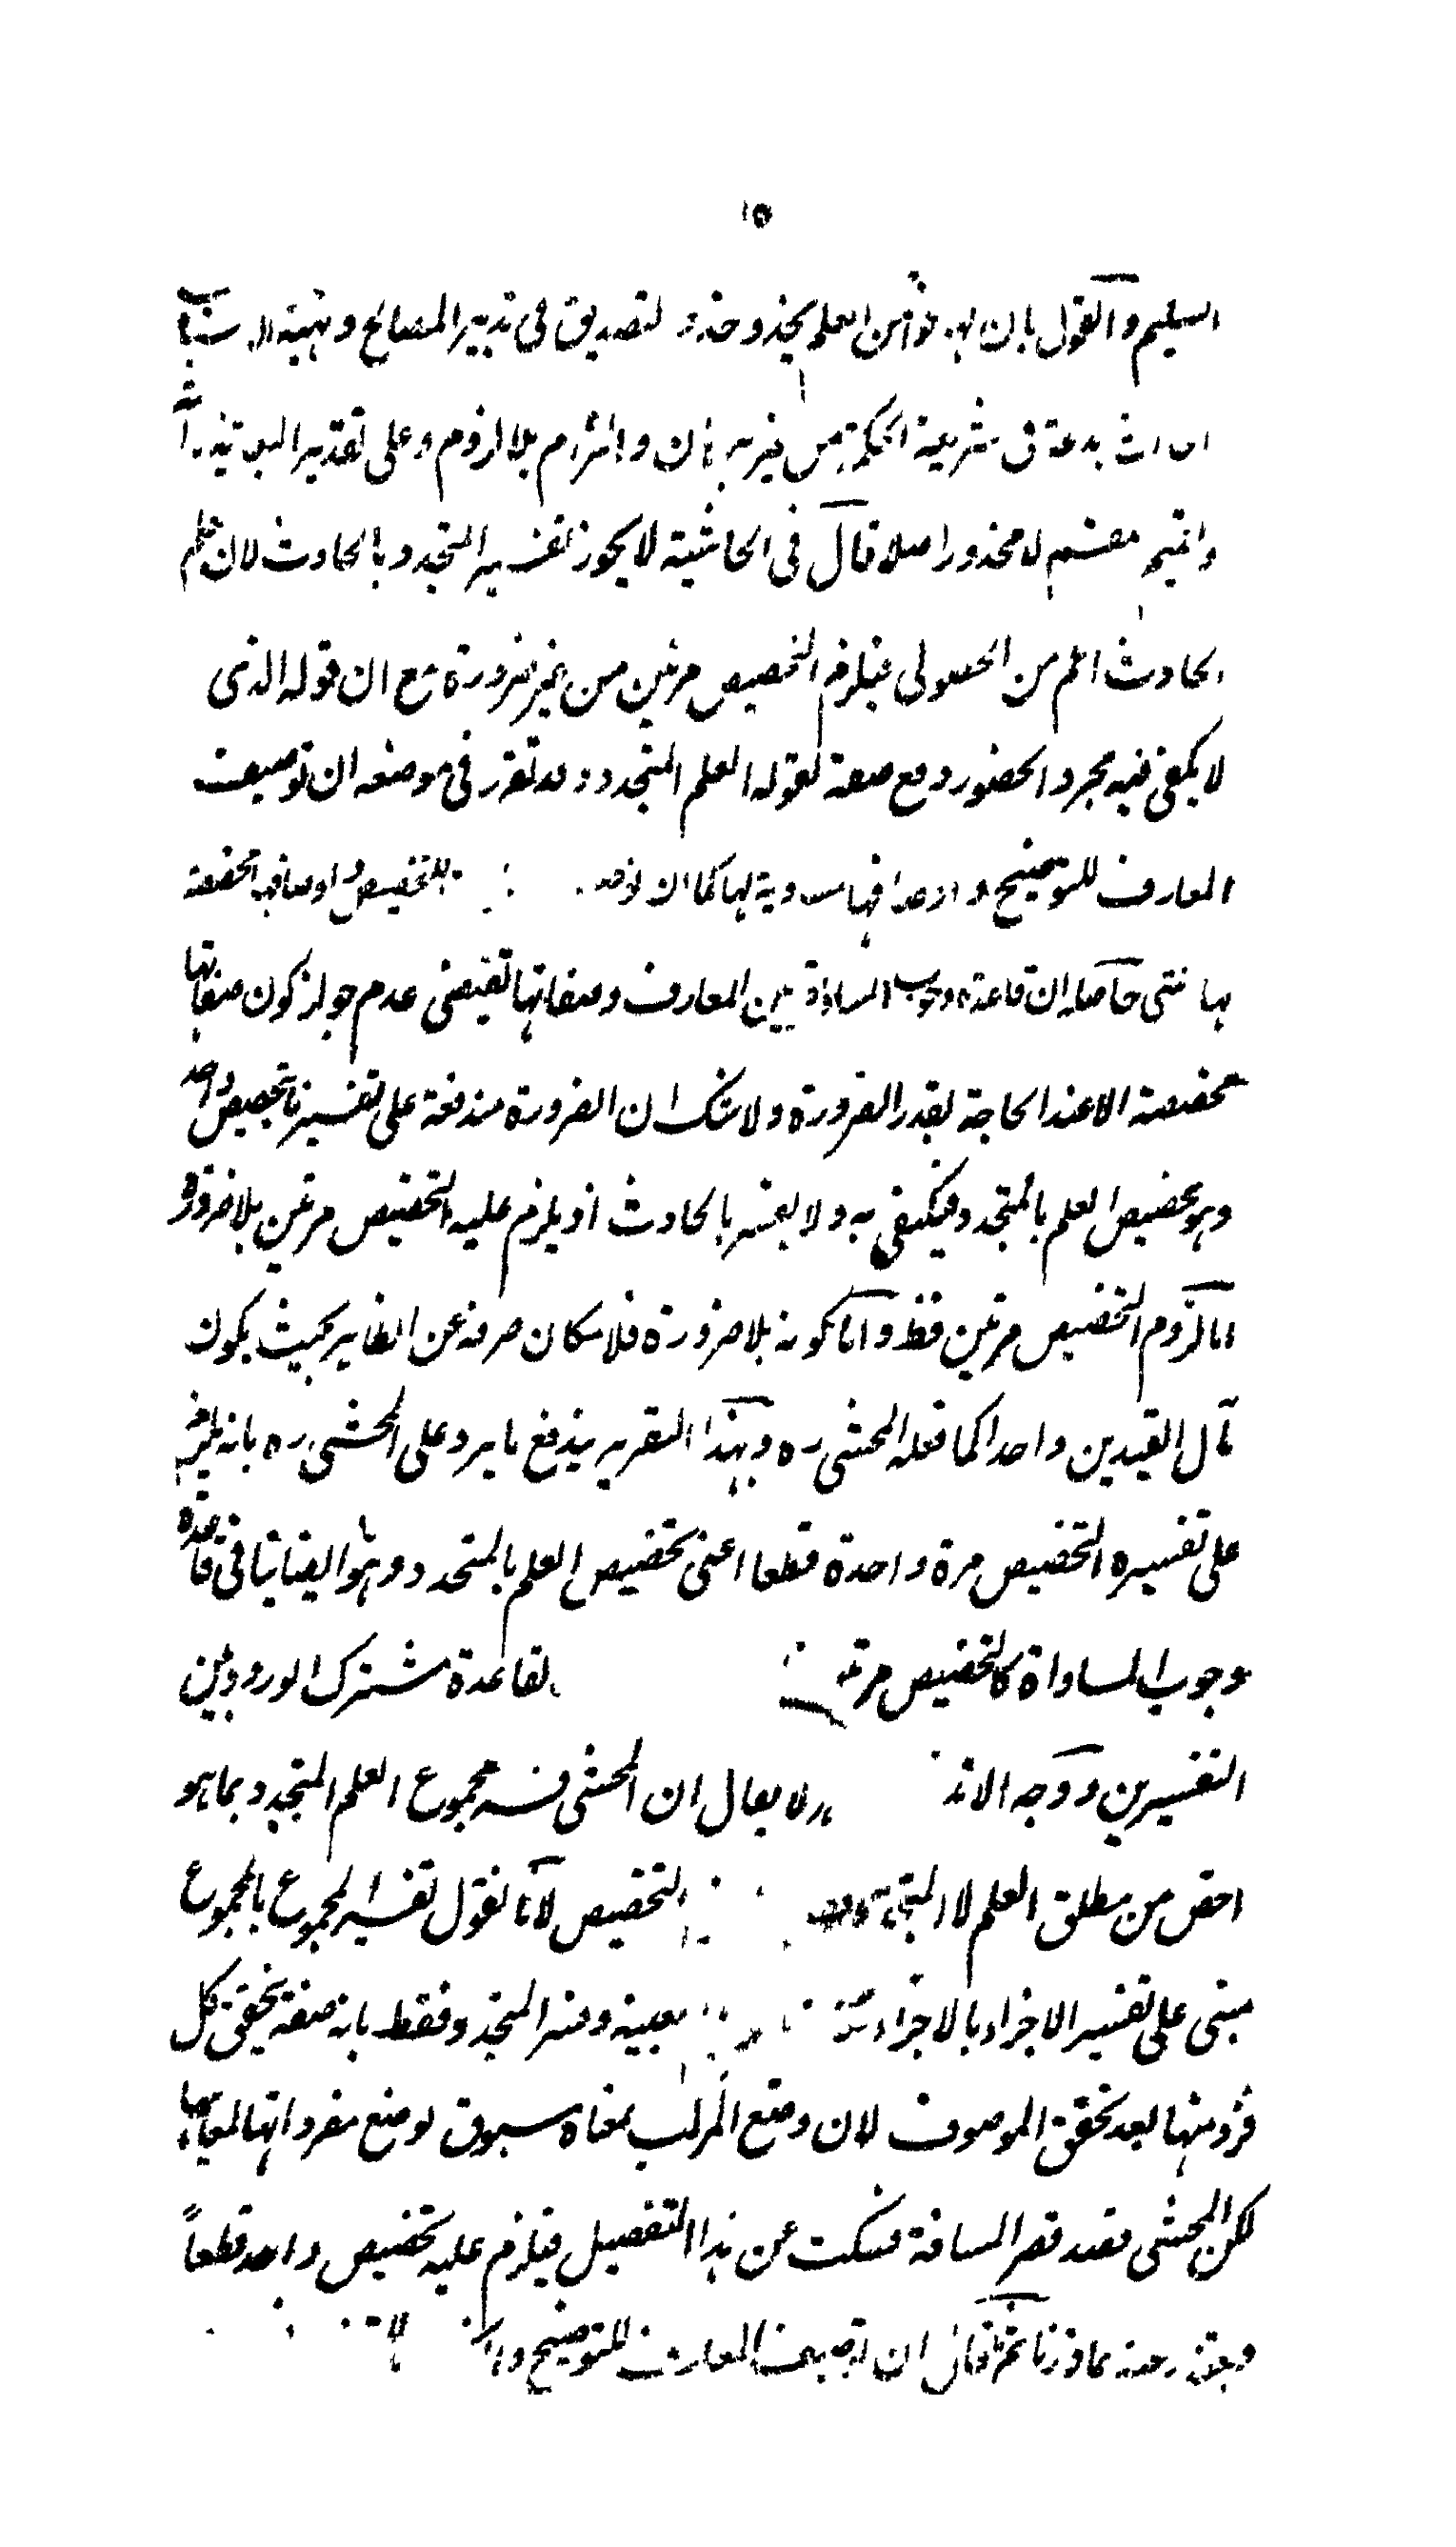 ١٥
السليم والقول بان لهذا نوأمن العلم يحذو حذو التصديق فى تدبير المصالح وتهيئة الاسباب
احداث بدعة فى شريعة الحكمة من غير برهان والتزام بلا لزوم وعلى تقدير
مقسم لا محذور اصلا قال فى الحاشية لا يجوز تفسير المتجدد بالحادث لان علم
الحادث اعم من الحصولى فيلزم التخصيص مرتين من غير ضرورة مع ان قوله الذى
لا يكفى فيه مجرد الحضور وقع صفة لقوله العلم المتجدد وقد تقرر فى موضعه ان توصيف
المعارف للتوضيح واوصافها مساوية لها كما ان توصيف للتخصيص واوصافها مخصصة
لها انتهى حاصله ان قاعدة وجوب المساواة بين المعارف وصفاتها تقتضى عدم جواز كون صفاتها
مخصصة الا عند الحاجة بقدر الضرورة ولا شك ان الضرورة مندفعة على تفسيرنا بتخصيص واحد
وهو تخصيص العلم بالمتجدد فيكتفى به ولا يفسر بالحادث اذ يلزم عليه التخصيص مرتين بلا ضرورة
اما لزوم التخصيص مرتين فظ واما كونه بلا ضرورة فلامكان صرفه عن الظاهر بحيث يكون
مآل القيدين واحدا كما فعله المحشى ره وبهذا التقرير يندفع ما يرد على المحشى ره بانه يلزم
على تفسيره التخصيص مرة واحدة قطعا اعنى تخصيص العلم بالمتجدد وهو ايضا ينافى قاعدة
وجوب المساواة كالتخصيص مرتين لقاعدة مشترك الورود بين
التفسيرين ووجه الاند لا يقال ان المحشى فسر مجموع العلم المتجدد بما هو
اخص من مطلق العلم لا المتجدد التخصيص لانا نقول تفسير المجموع بالمجموع
مبنى على تفسير الاجزاء بالاجزاء بعينه وفسر المتجدد فقط بانه صفة يتحقق كل
فرد منها بعد تحقق الموصوف لان وضع المركب بمعناه مسبوق لوضع مفرداتها لمعانيها
لكن المحشى قصد قصر المسافة فسكت عن هذا التفصيل فيلزم عليه تخصيص واحد قطعاً
بما قررنا ثم قال ان توصيف المعارف للتوضيح